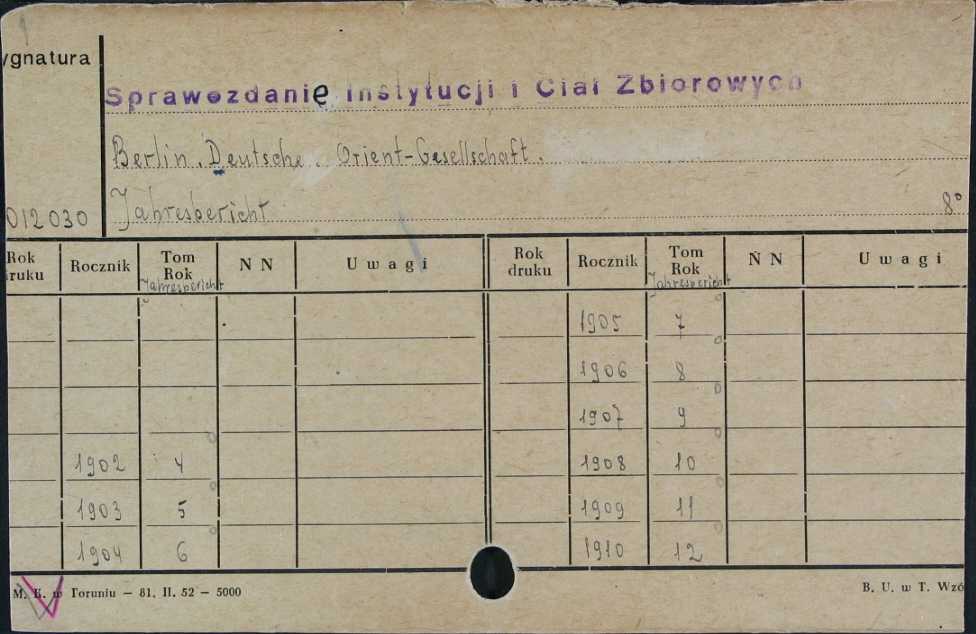 ygnatura
Sprawozdanię Instytucji i Ciał Zbiorowych
Berlin. Deutsche. Orient-Gesellschaft.
012030 Jahresbericht 8°
Rok druku Rocznik Tom Rok Jahresbericht N N Uwagi Rok druku Rocznik Tom Rok Jahresbericht N N Uwagi
1905 7
1906 8
1907 9
1902 4 1908 10
1903 5 1909 11
1904 6 1910 12
M. K. w Toruniu — 81. II. 52 — 5000 B. U. w T. Wzó